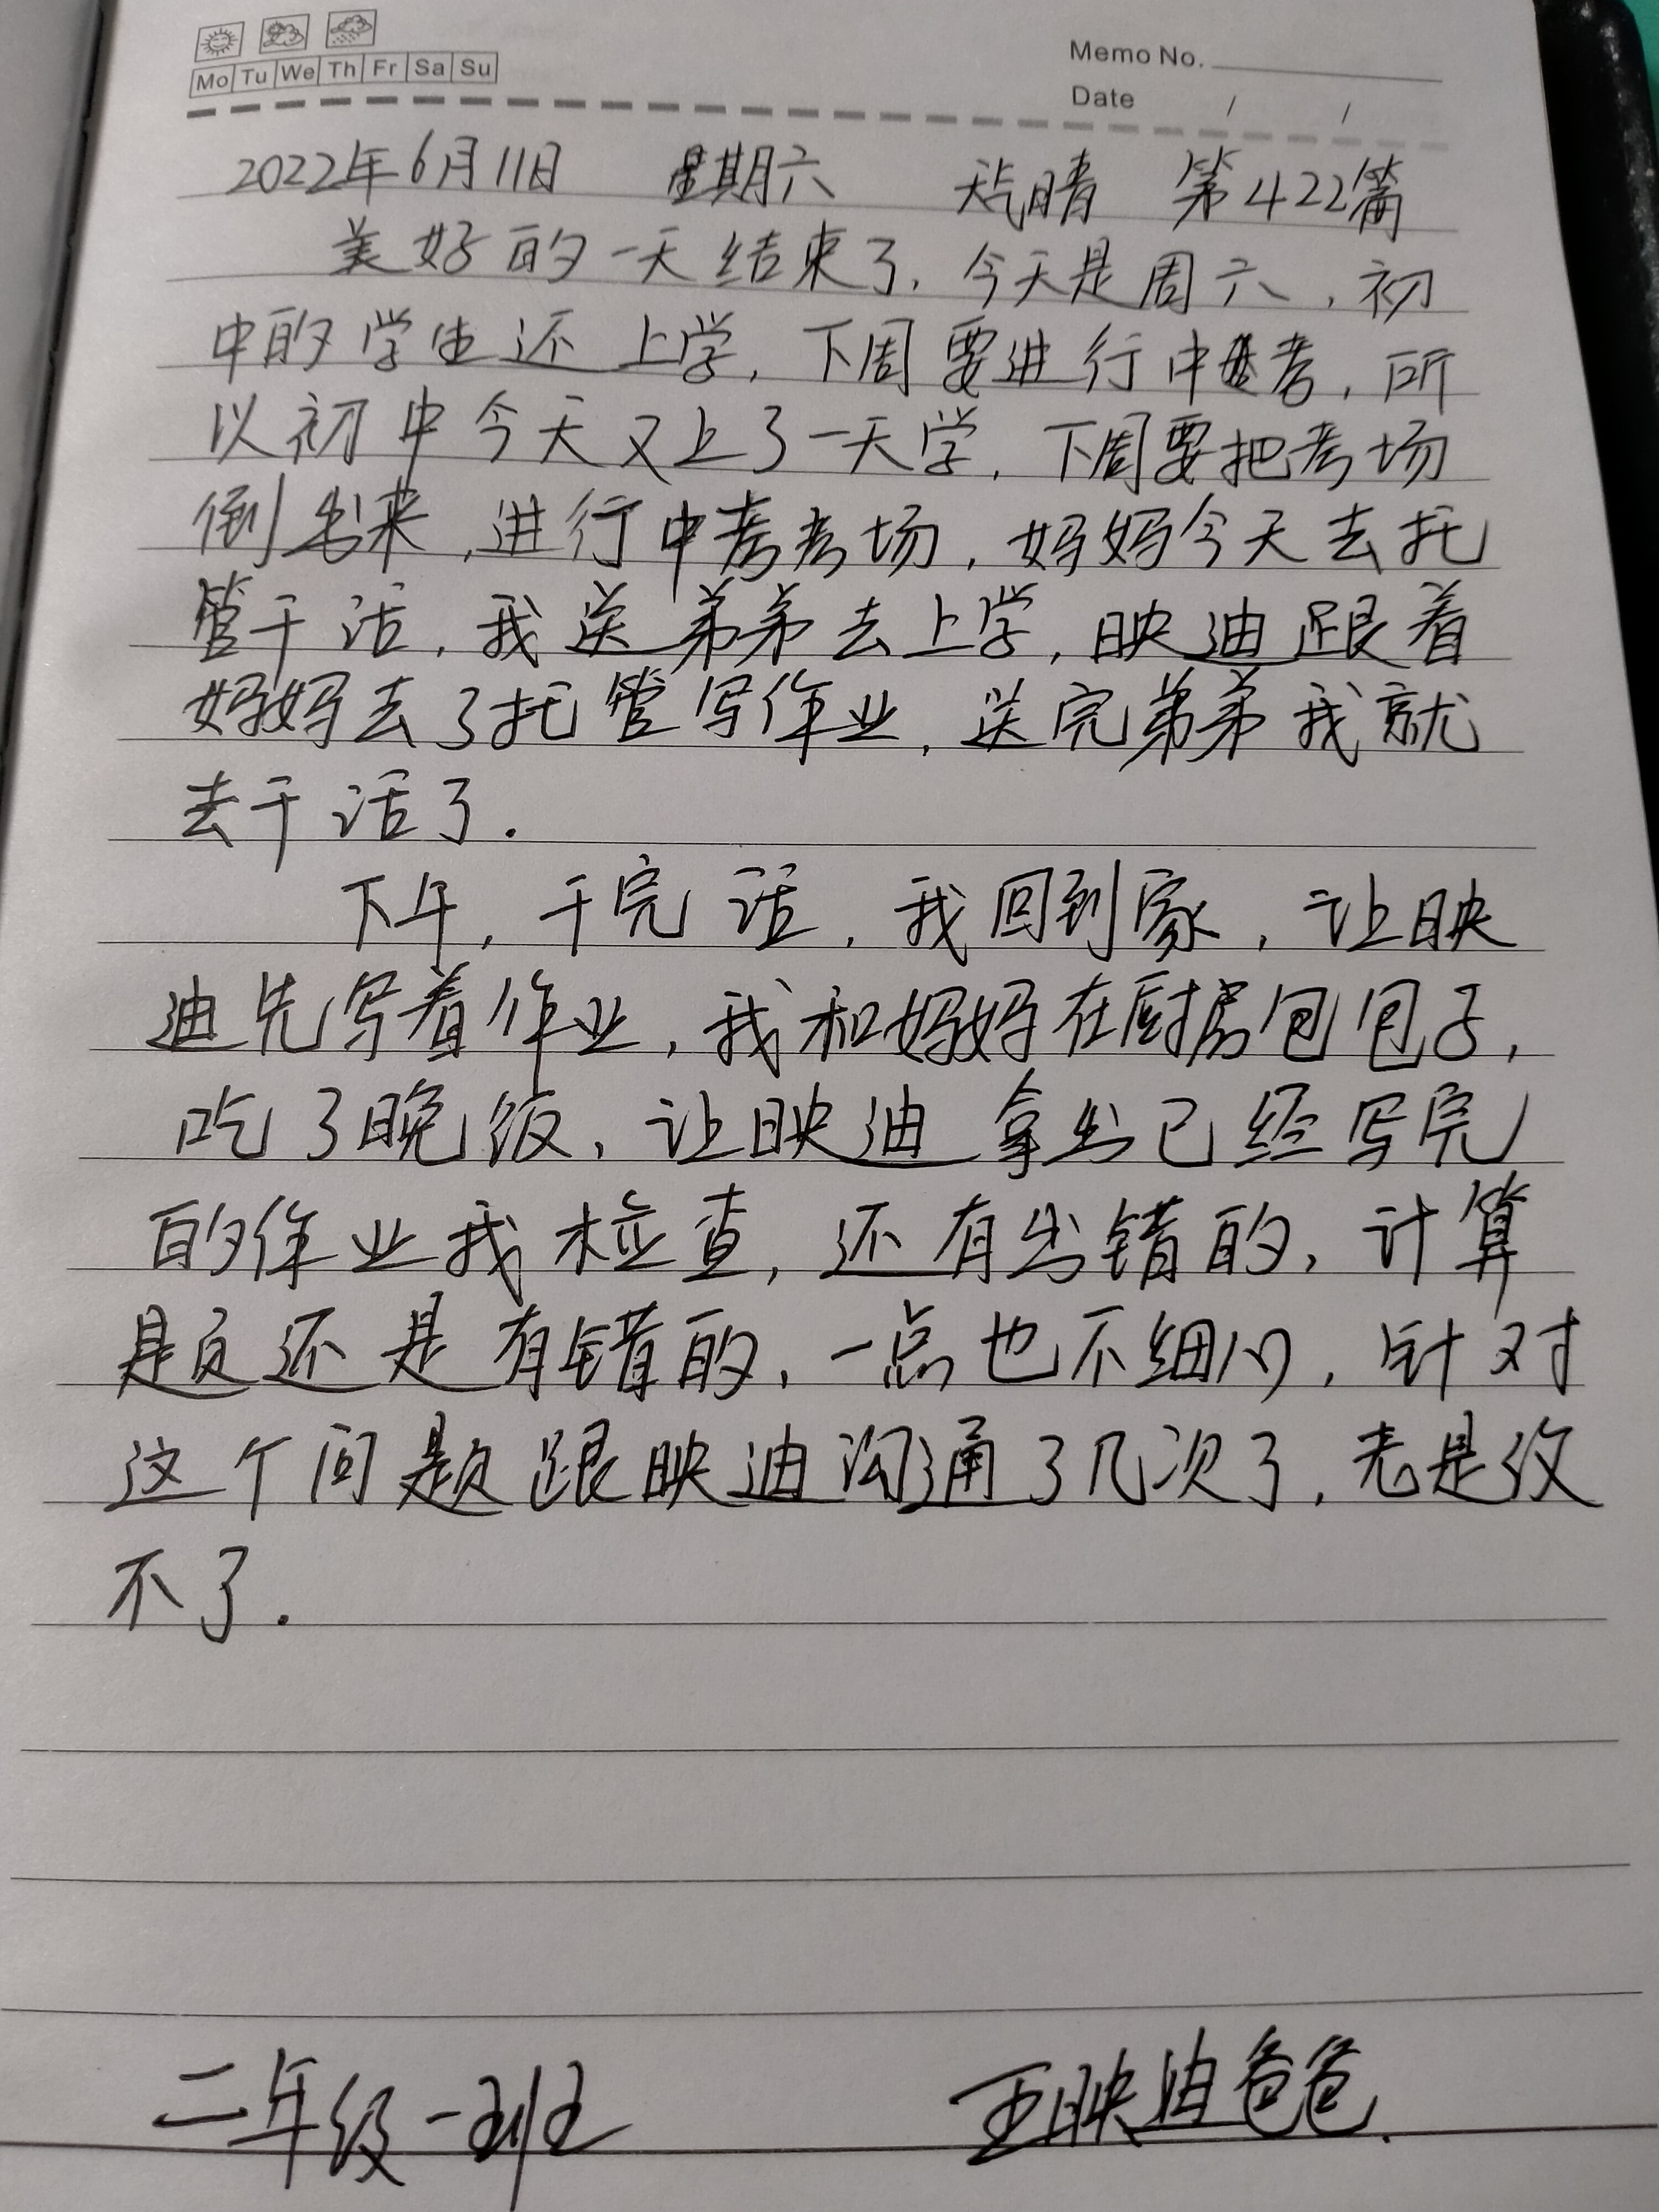 Mo Tu We Th Fr Sa Su
Memo No.
Date / /
2022年6月11日 星期六 天气晴 第422篇
美好的一天结束了,今天是周六,初
中的学生还上学,下周要进行中考,所
以初中今天又上了一天学,下周要把考场
倒出来,进行中考考场,妈妈今天去托
管干活,我送弟弟去上学,映迪跟着
妈妈去了托管写作业,送完弟弟我就
去干活了.
下午,干完活,我回到家,让映
迪先写着作业,我和妈妈在厨房包包子,
吃了晚饭,让映迪拿出已经写完
的作业我检查,还有出错的,计算
题还是有错的,一点也不细心,针对
这个问题跟映迪沟通了几次了,老是改
不了.
二年级一班 王映迪爸爸.